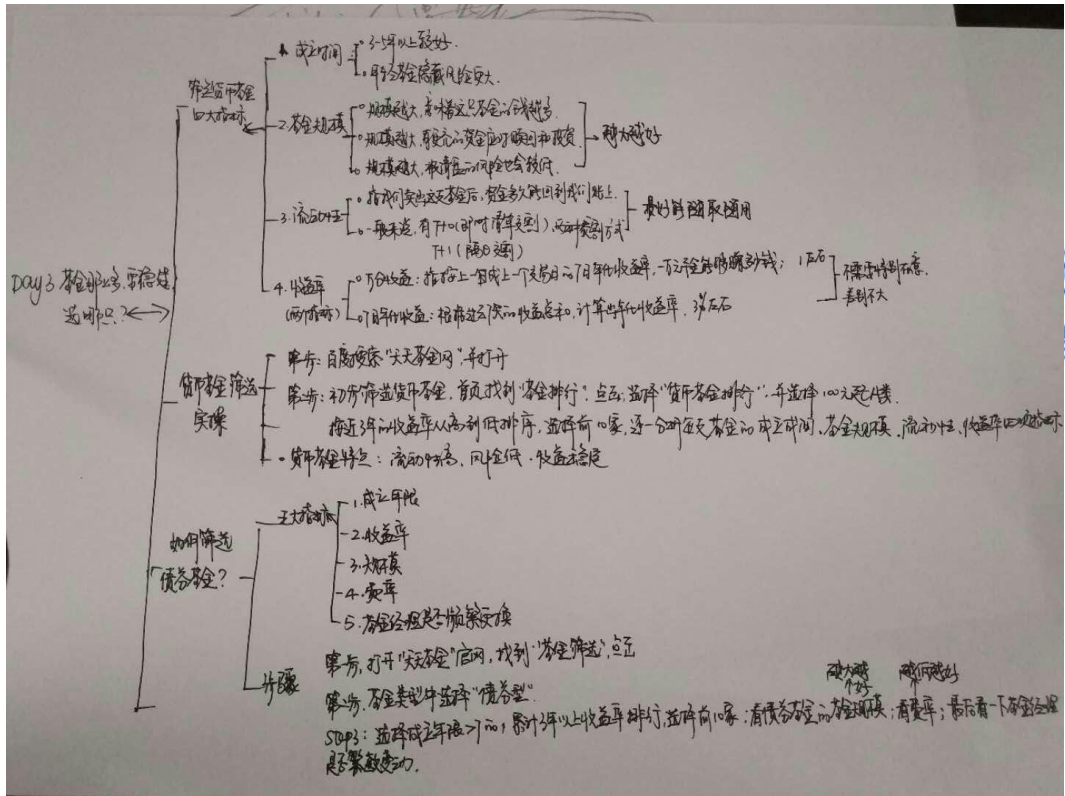 Day3 基金那么多，要稳健
选哪只？
筛选货币基金
四大指标
1. 成立时间
3-5年以上较好.
年轻基金隐藏风险更大.
2. 基金规模
规模越大,
基金的钱越多.
规模越大,
规模越大, 被清盘的风险也会较低.
越大越好
3. 流动性
指我们卖出这支基金后, 资金多久能回到我们账上.
一般来说, 有T+0(即时清算交割), 两种类别方式
T+1 (隔日交割)
最好能随取随用
4. 收益率
(两个指标)
万份收益: 指按上一日或上一个交易日的7日年化收益率, 一万元
1左右
7日年化收益: 根据过去7天的收益总和, 计算出年化收益率. 3%左右
不需要特别在意.
差别不大
货币基金筛选
实操
第一步: 百度搜索"天天基金网", 并打开
第二步: 初步筛选货币基金, 首页找到"基金排行", 点击, 选择"货币基金排行", 并选择100元起A类.
按近3年的收益率从高到低排序, 选择前10家, 逐一分析每支基金的成立时间、基金规模、流动性、收益率四项指标
货币基金特点: 流动性高、风险低、收益稳定
如何筛选
债券基金?
五大指标
1. 成立年限
2. 收益率
3. 规模
4. 费率
5. 基金经理是否频繁更换
步骤
第一步, 打开"天天基金"官网, 找到"基金筛选", 点击
第二步, 基金类型中选择"债券型"
越大越好
越低越好
Step3: 选择成立年限>7的, 累计3年以上收益率排行, 选择前10家; 看债券基金的基金规模; 看费率; 最后看一下基金经理
是否繁数变动.